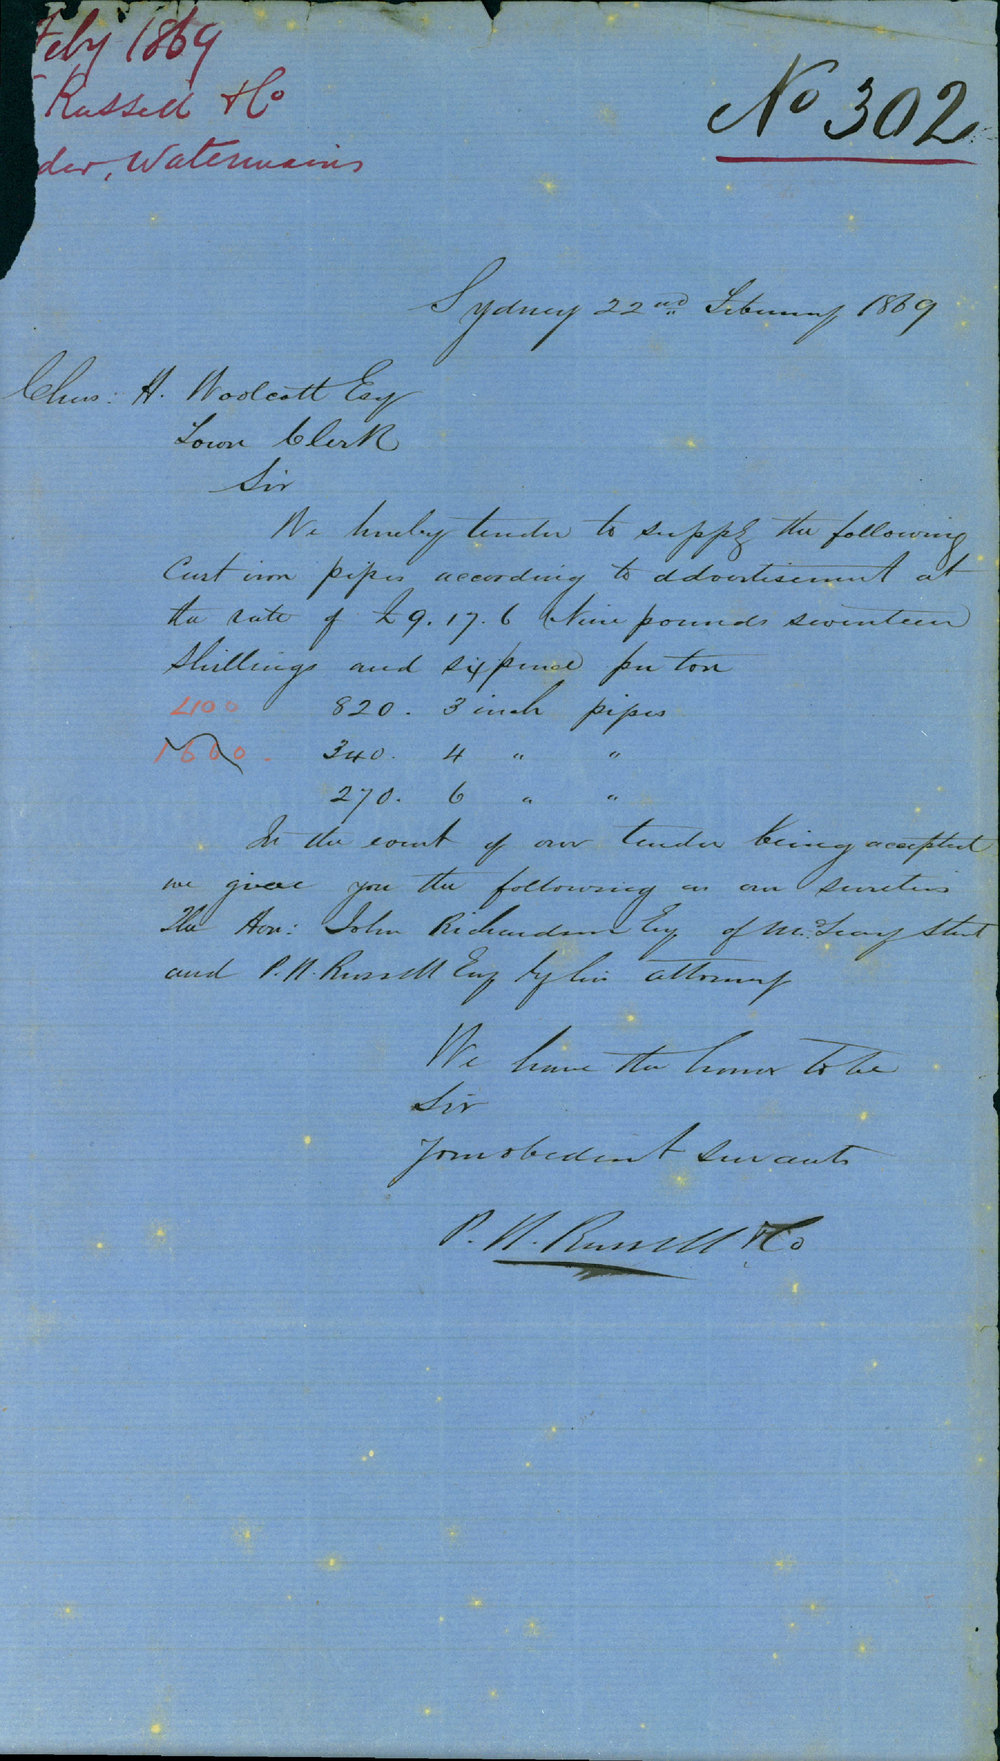 Feby 1869
Russell & Co
der, Watermains
No 302
Sydney 22nd February 1869
Chas: H. Woolcott Esq
Town Clerk
Sir
We hereby tender to supply the following
Cast iron pipes according to advertisement at
the rate of £9.17.6 Nine pounds seventeen
Shillings and sixpence per ton
820. 3 inch pipes
1660. 340. 4 " "
270. 6 " "
In the event of our tender being accepted
we give you the following as our sureties
The Hon: John Richardson Esq of McLeay Street
and P. N. Russell Esq by his attorney
We have the honor to be
Sir
Your obedient servants
P. N. Russell & Co